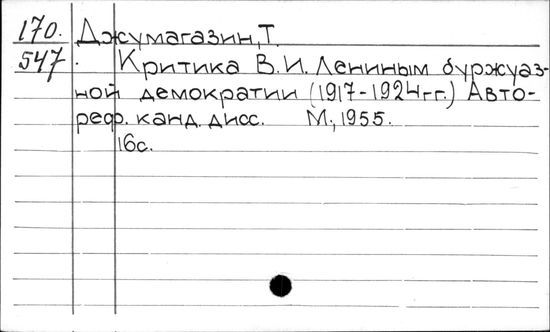 170. Джумагазин, Т.
547. Критика В.И. Лениным буржуаз-
ной демократии (1917-1924гг.) Авто-
реф. канд. дисс. М., 1955.
16с.